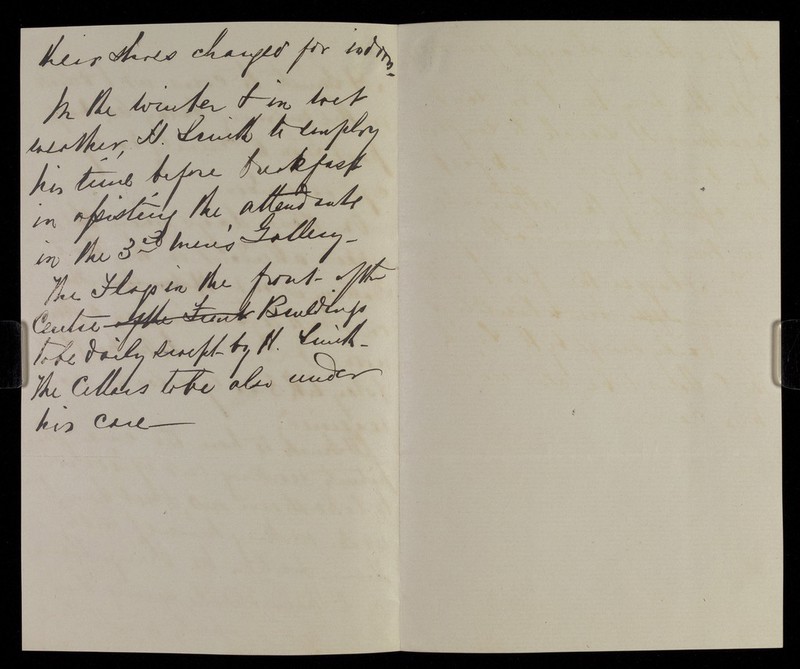 their shoes changed for indoors-
In the winter & in wet
weather, H. Smith to employ
his time before breakfast
in assisting the attendants
in the 3rd Men's Gallery-
The Flags in the front of the
Centre of the Front Buildings
to be daily swept by H. Smith-
The Cellars to be also under
his care-